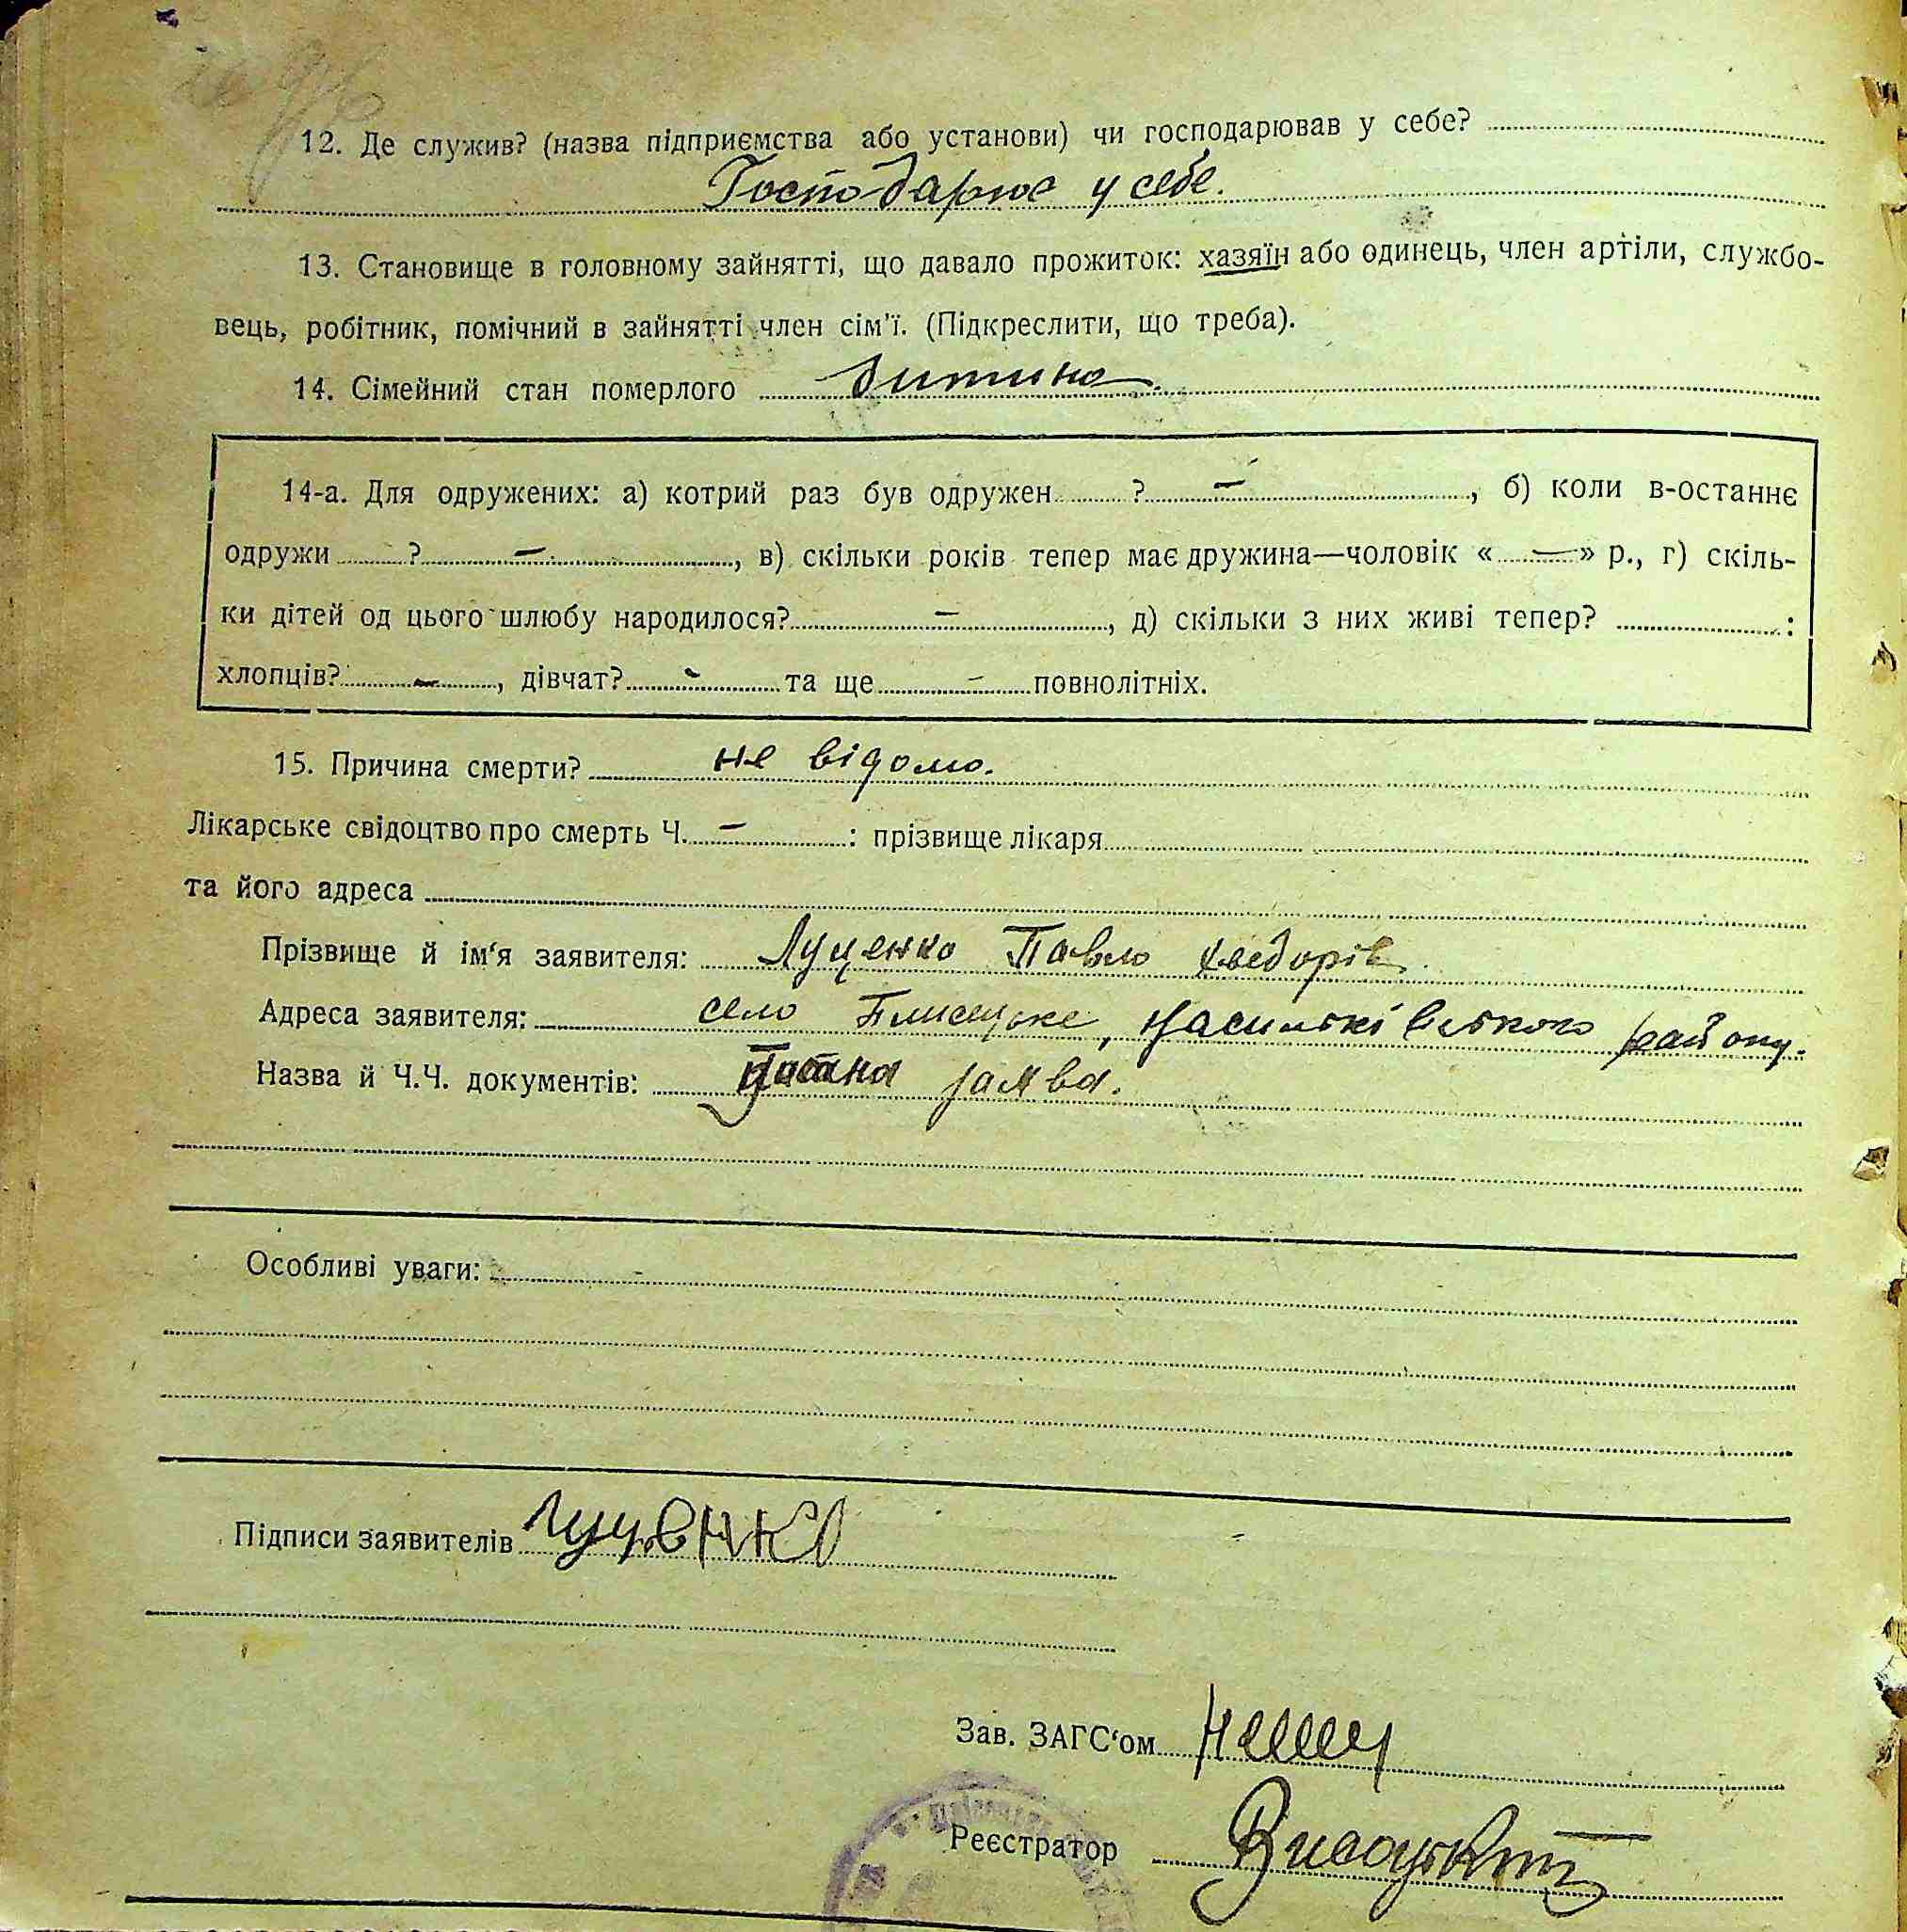 12. Де служив? (назва підприємства або установи) чи господарював у себе?
Господарює у себе.
13. Становище в головному зайнятті, що давало прожиток: хазяїн або одинець, член артіли, службо-
вець, робітник, помічний в зайнятті член сім'ї. (Підкреслити, що треба).
14. Сімейний стан померлого дитина.
14-а. Для одружених: а) котрий раз був одружен ? —, б) коли в-останнє
одружи ? —, в) скільки років тепер має дружина—чоловік «—» р., г) скіль-
ки дітей од цього шлюбу народилося? —, д) скільки з них живі тепер? :
хлопців? —, дівчат? — та ще — повнолітніх.
15. Причина смерти? не відомо.
Лікарське свідоцтво про смерть Ч. — : прізвище лікаря
та його адреса
Прізвище й ім'я заявителя: Луценко Павло Хведорів
Адреса заявителя: село Плисецьке, Васильківського району.
Назва й Ч.Ч. документів: заява.
Особливі уваги:
Підписи заявителів Луценко
Зав. ЗАГС'ом
Реєстратор